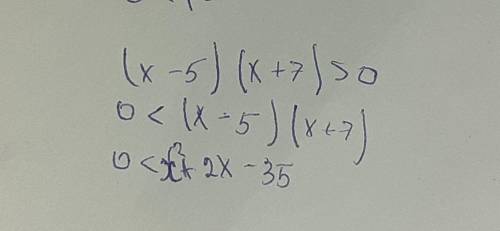 (x - 5) (x + 7) > 0
0 < (x - 5) (x + 7)
0 < x² + 2x - 35